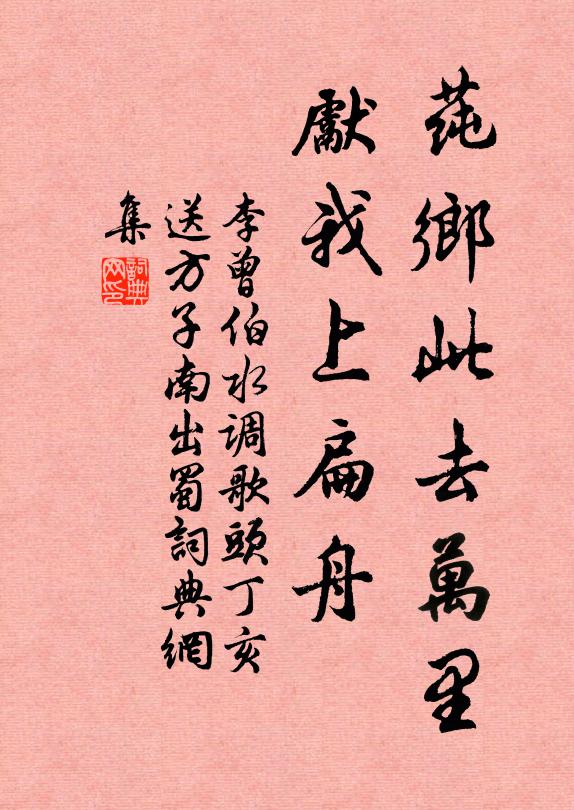 莼鄉此去萬里
獻我上扁舟
李曾伯水调歌頭丁亥
送方子南出蜀詞典網
集
詞典
网印